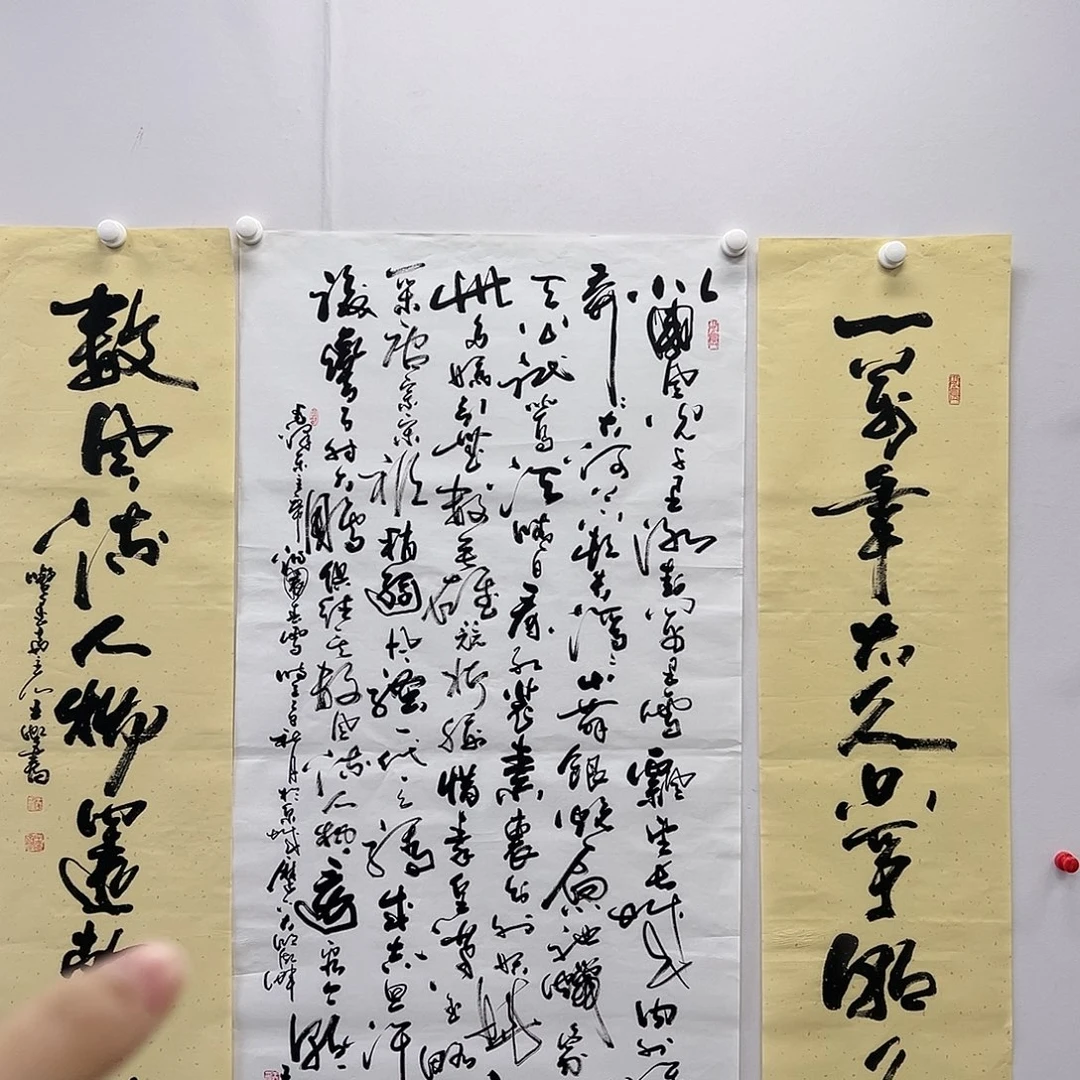 一萬年太久只爭朝夕
北國風光千里冰封萬里雪飄望長城內外
莽大河上下頓失滔滔山舞銀蛇原馳蠟象
天公試比高須晴日看紅裝素裹分外妖嬈
此多嬌引無數英雄競折腰惜秦皇漢武略
采唐宗宋祖稍遜風騷一代天驕成吉思汗
識彎弓射大雕俱往矣數風流人物還看今朝
毛澤東主席詞沁園春雪
數風流人物還看